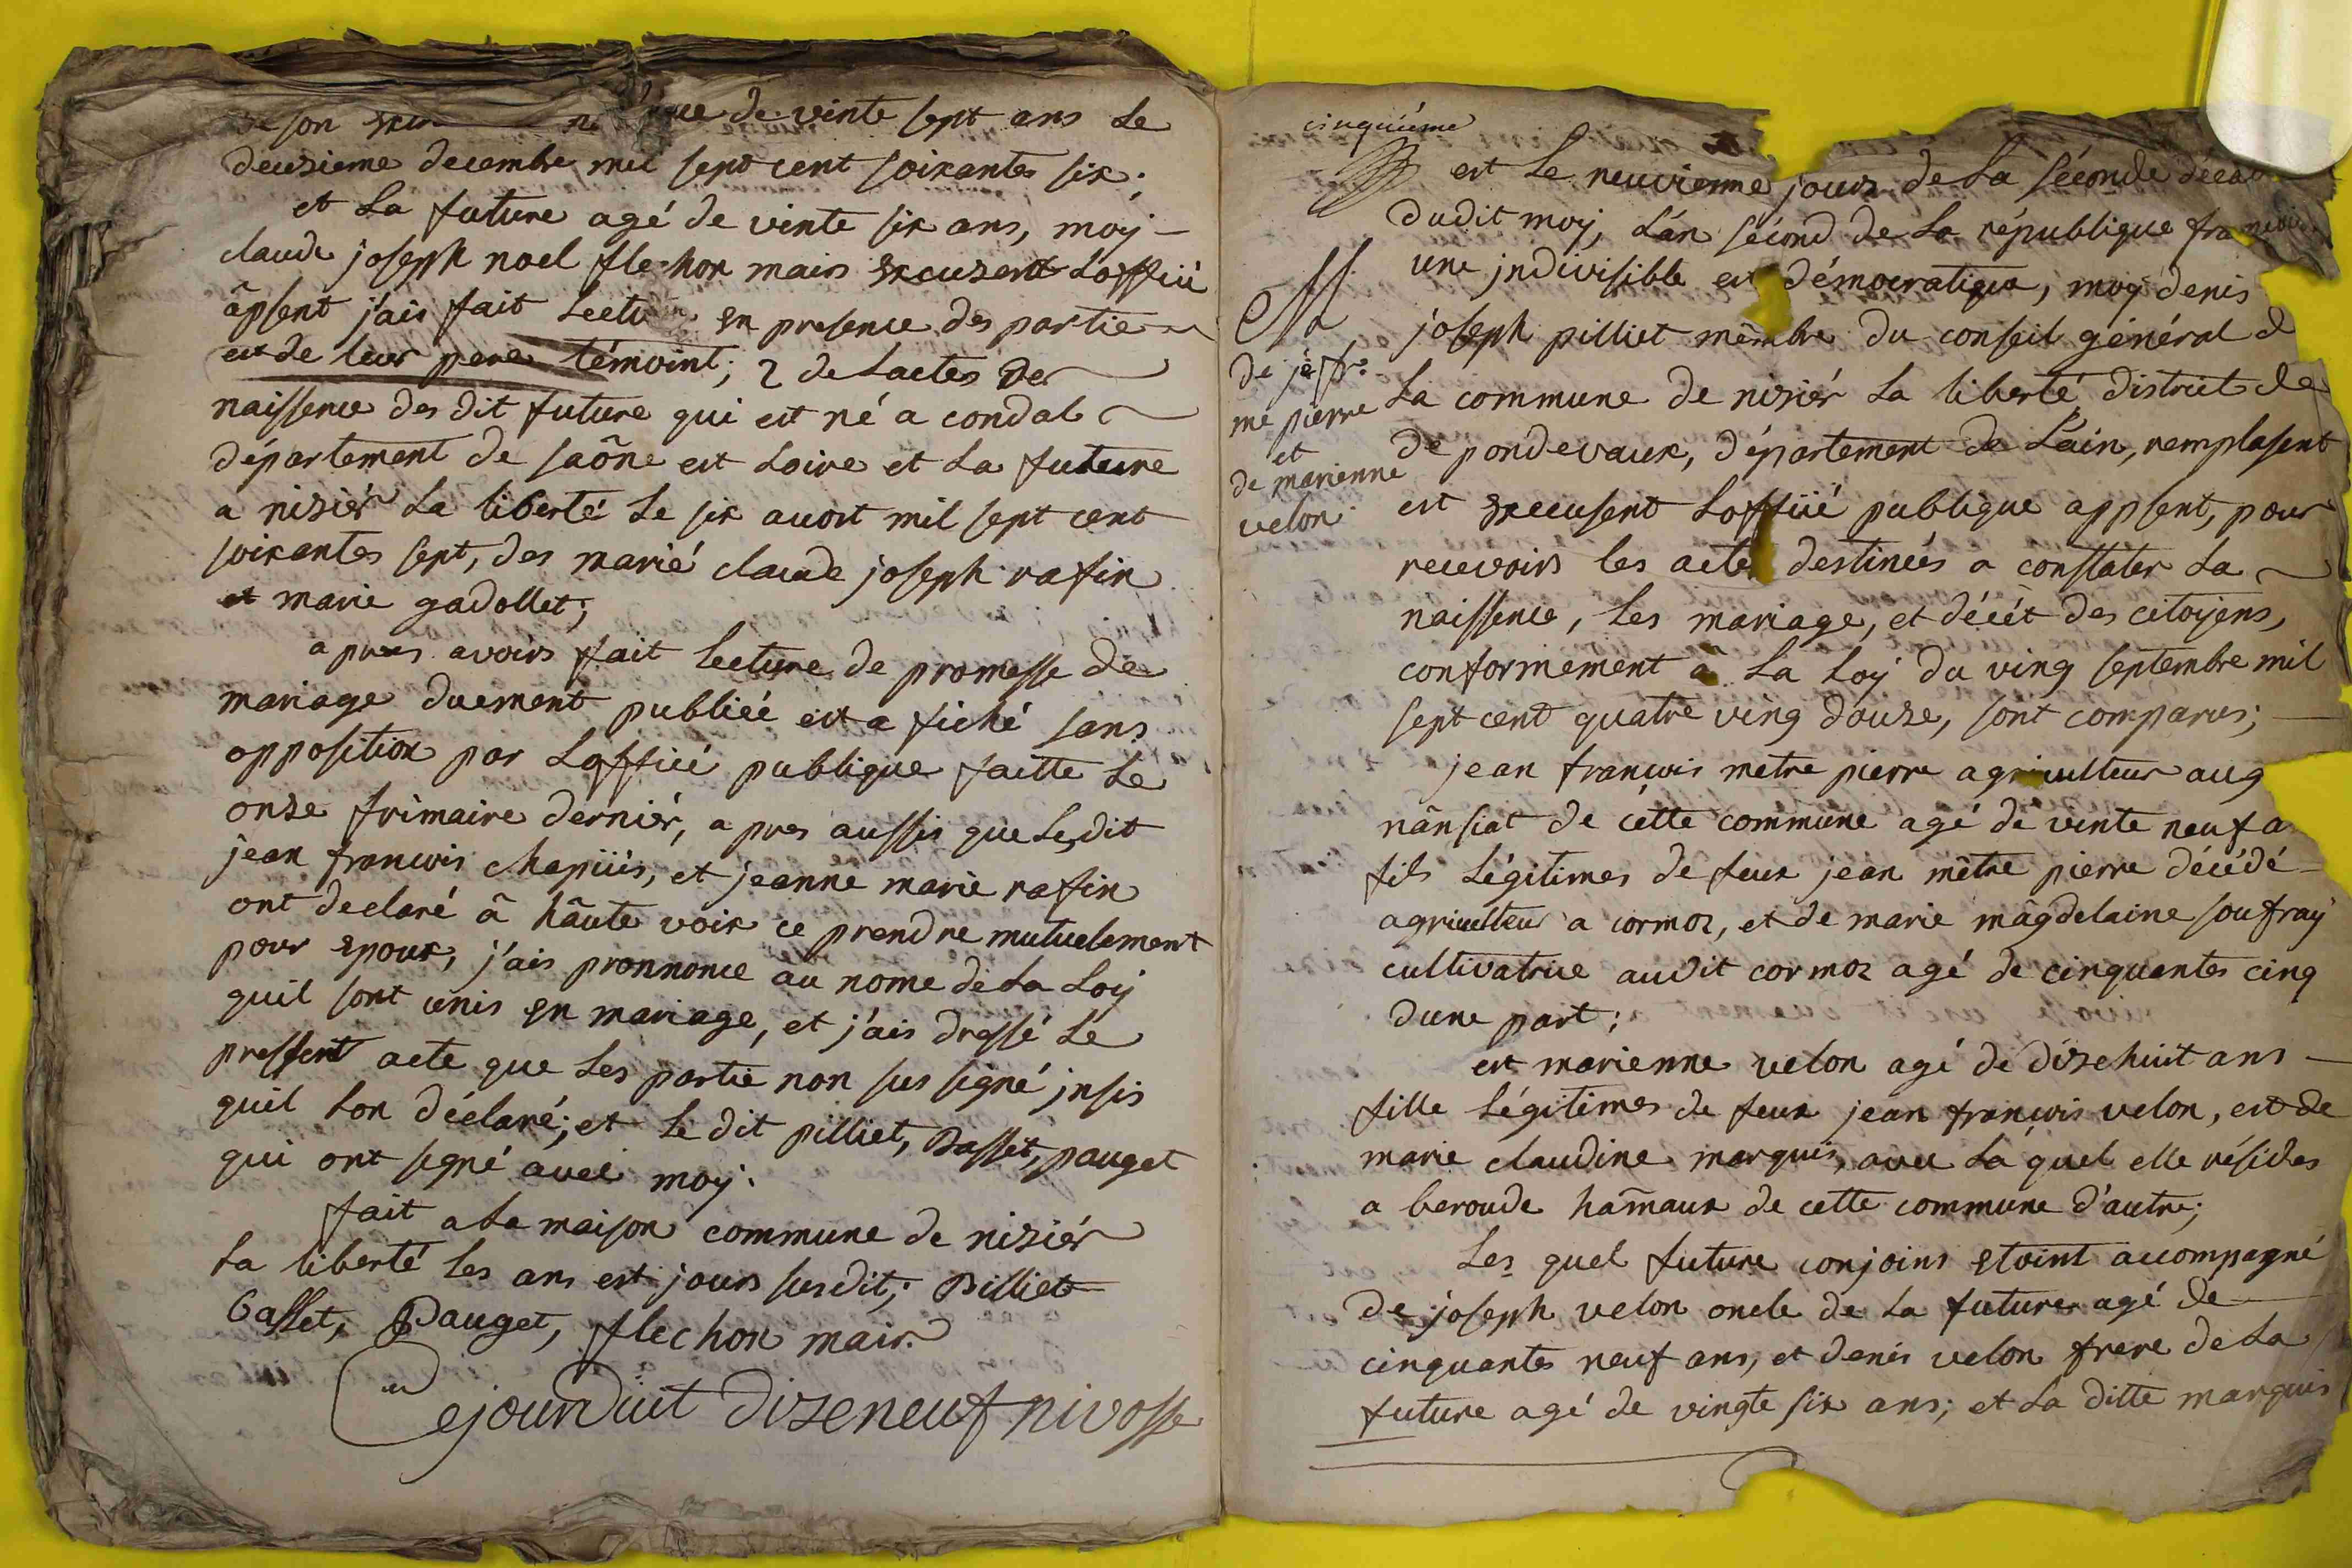 de son
agé de vinte sept ans Le
deuxieme decembre mil sept cent soixantes six;
et La future agé de vinte six ans, moÿ
claude joseph noel flechon mair excusent Loffiié
âpsent j'ais fait Lectu en presence des partie
et de leur pere témoint; 2 de Lactes de
naissence des dit future qui est né a condal
département de saône est Loire et La future
a nisiér La liberté Le six auoit mil sept cent
soixantes sept, des marié claude joseph rafin
et marie gadollet;
apres avoirs fait Lecture de promesse de
mariage duement publiéé est a fiché sans
opposition par Loffiié publique faitte Le
onse frimaire derniér, a pres aussis que Le dit
jean francois chapüis, et jeanne marie rafin
ont declaré â hâute voix ce prendre mutuelement
pour epoux, j'ais pronnonce au nome de La Loÿ
quil sont unis en mariage, et j'ais dressé Le
pressent acte que Les partie non sus signé jnsis
quil Lon déclaré; et Le dit pilliet, Basset, pauget
qui ont signé avec moÿ.
fait a La maison commune de nisiér
La liberté Les ans est jours susdit; Pilliet
Basset, Pauget, flechon mair.
Cejourduit dizeneuf nivosse
cinquiéme
est Le neuvienne jours de La séconde décad
dudit moÿ, L'an sécond de La république francois
une jndivisible est démocratique, moÿ denis
joseph pilliet mêmbre du conseil général d
La commune de nisiér La liberté district de
de pondevaux, département de L'ain, remplasent
est excusent Loffiié publique appsent, pour
recevoirs les actes destinéés a constater La
naissence, Les mariage, et décét des citoÿens,
conformement â La Loÿ du ving septembre mil
sept cent quatre ving douze, sont comparus;
jean francois metre pierre agriculteur aug
nânsiat de cétte commune agé de vinte neuf a
fils Légitimes de feux jean mêtre pierre décédé
agriculteur a cormoz, et de marie mâgdelaine soufraÿ
cultivatrice audit cormoz agé de cinquantes cinq
dune part;
est marienne velon agé de dizehuit ans
fille Légitimes de feux jean francois velon, est de
marie claudine marquis, avec La quel elle résides
a beroude hamaux de cette commune d'autre;
Les quel future conjoins etoint accompagné
de joseph velon oncle de La future agé de
cinquantes neuf ans, et denis velon frere de La
future agé de vingte six ans; et La ditte marquis
Ma
de jê fr:
me pierre
et
de marienne
velon.